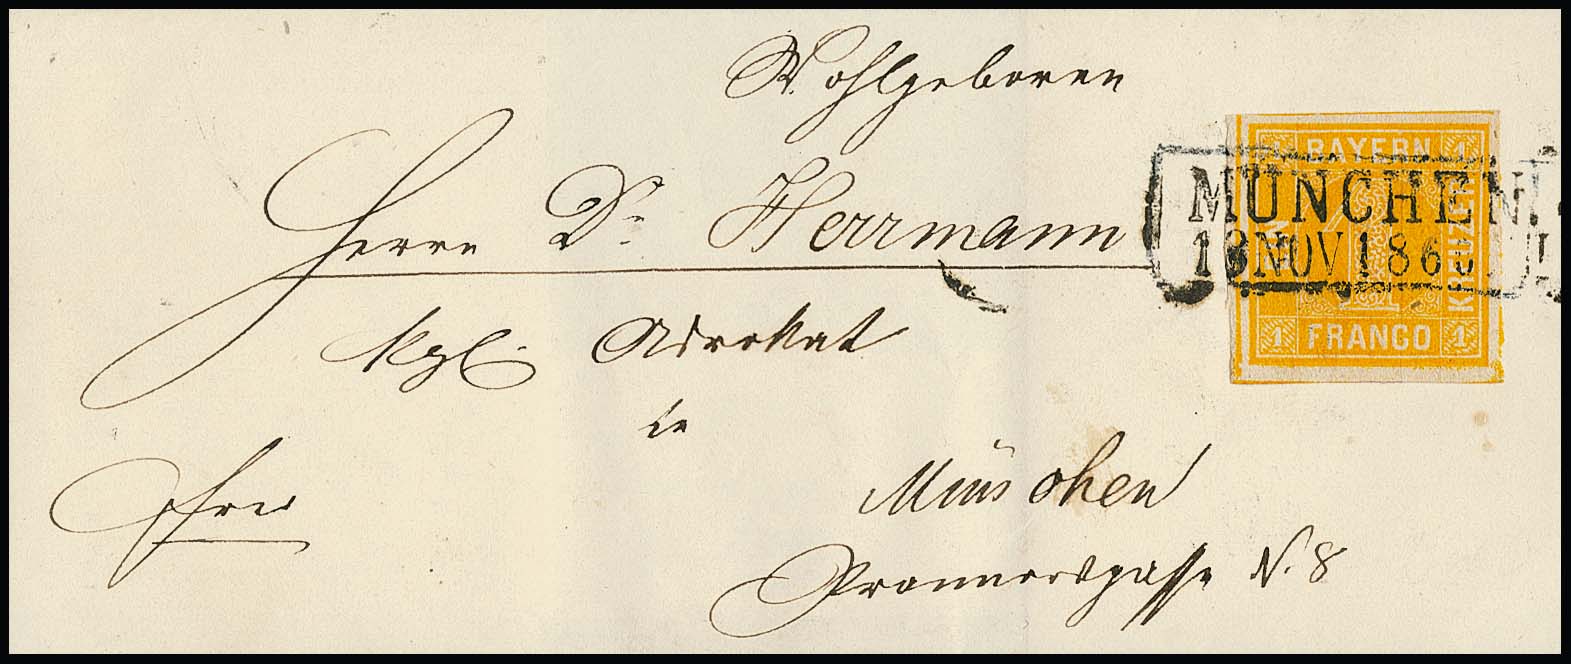 Wohlgeboren
Herrn Dr. Herrmann
kgl. Advokat
in
München
Prannersgasse N. 8
frei
1 BAYERN 1
KREUZER
1 FRANCO 1
MÜNCHEN.
NOV 186